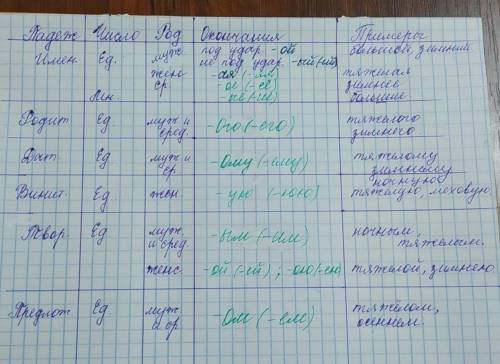 Падеж Число Род Окончания Примеры
Имен. Ед. муж. под удар. -ой большой, зимний
не под удар. -ый(ий)
женс -ая (-яя) тяжелая
ср. -ое (-ее) зимнее
Мн. -ые (-ие) большие.
Родит. Ед муж и -ого (-его) тяжелого
сред. зимнего
Дат. Ед муж и -ому (-ему) тяжелому
ср зимнему
ночную
Винит. Ед жен -ую (-юю) тяжелую, меховую
Твор. Ед муж. -ым (-им) ночным,
и сред. тяжелым.
женс. -ой (-ей); -ою(-ею) тяжелой, зимнею.
Предлож. Ед муж -ом (-ем) тяжёлом,
и ср. осеннем.